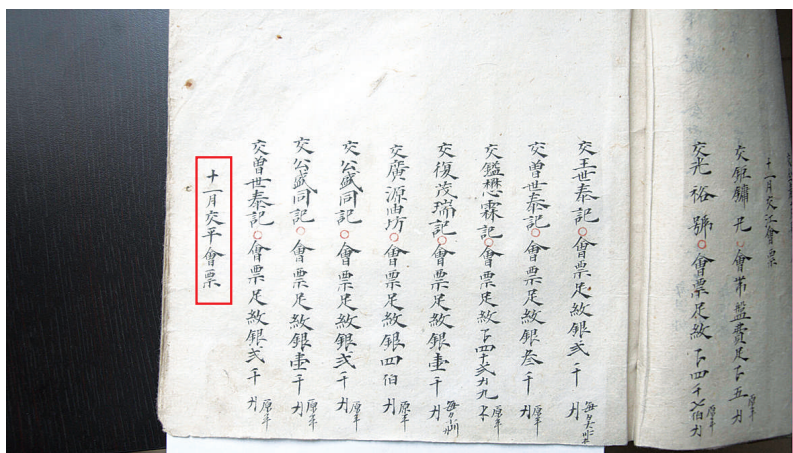 十一月交江會票
交 會 盤費足 五 刃 原平
交光裕號會票足紋 四千七伯刃 原平
交王世泰記會票足紋銀弍千刃
交曾世泰記會票足紋銀叁千刃 原平
交鑑懋霖記會票足紋 四十弍刃九 原平
交復茂瑞記會票足紋銀壹千刃
交廣源曲坊會票足紋銀四伯刃 原平
交公盛同記會票足紋銀弍千刃 原平
交公盛同記會票足紋銀壹千刃 原平
交曾世泰記會票足紋銀弍千刃 原平
十一月交平會票